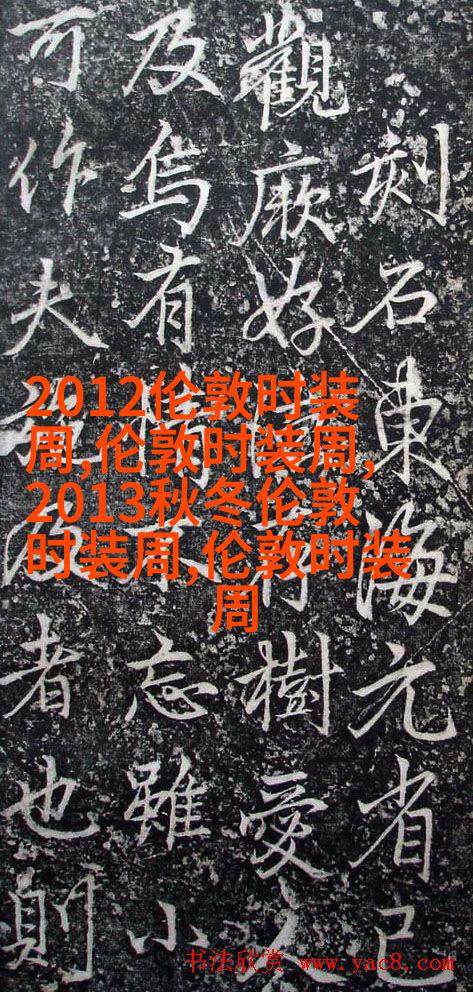 刻石東海元省已
觀厥好行樹愛
及烏有不忘雖小
可作夫者也則
2012伦敦时装
周,伦敦时装周,
2013秋冬伦敦
时装周,伦敦时装
周
书法欣赏 www.yac8.com